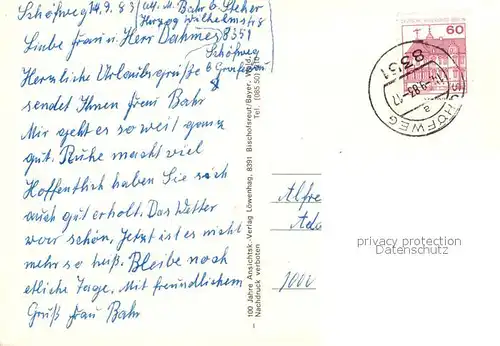 Schöfweg 14.9.83 Adr. M. Bahr b. Steher
Herzog Wilhelmstr 8
Liebe Frau u. Herr Dahmes 8351
Schöfweg
Herzliche Urlaubsgrüße b Grafenau
sendet Ihnen Frau Bahr
Mir geht es so weit ganz
gut. Ruhe macht viel
Hoffentlich haben Sie sich
auch gut erholt. Das Wetter
war schön. Jetzt ist es nicht
mehr so heiß. Bleibe noch
etliche Tage. Mit freundlichem
Gruß Frau Bahr
100 Jahre Ansichtsk.-Verlag Löwenhag, 8391 Bischofsreut/Bayer. Wald,
Nachdruck verboten
60
SCHÖFWEG
a
Alfre
privacy protection
Datenschutz